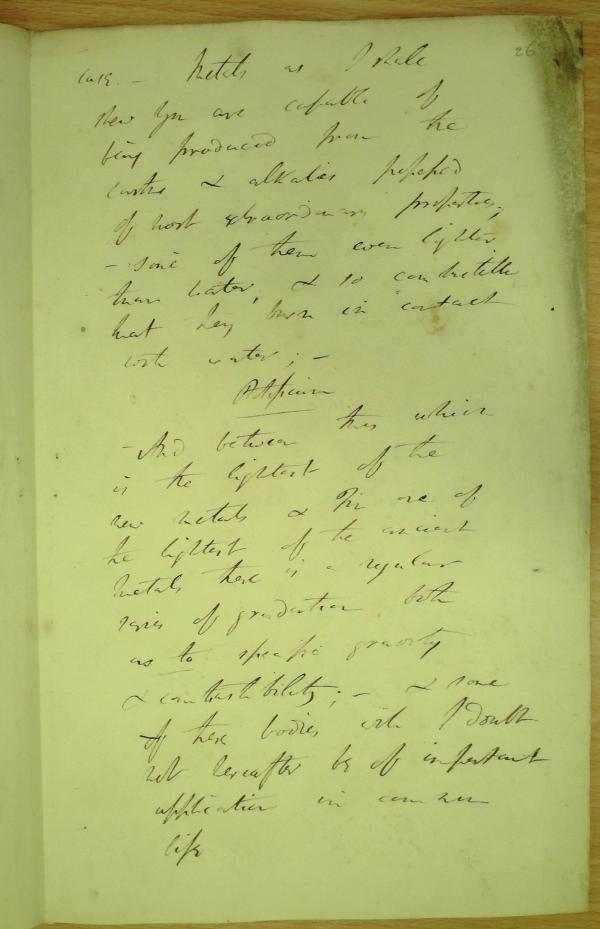 26
case. - Metals as I shall
shew you are capable of
being produced from the
earths & alkalies possessed
of most extraordinary properties;
- some of them even lighter
than water, & so combustible
that they burn in contact
with water; -
Potassium
- And between this which
is the lightest of the
new metals & Tin one of
the lightest of the ancient
metals there is a regular
series of gradation both
as to specific gravity
& combustibility; - & some
of these bodies will I doubt
not hereafter be of important
application in common
life